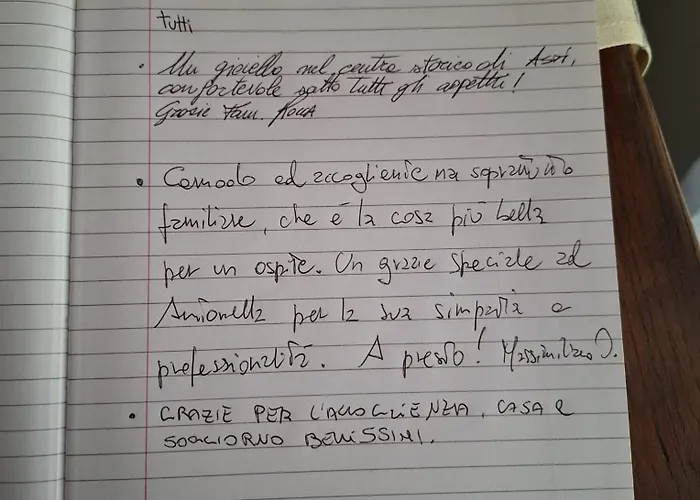 tutti
• Un gioiello nel centro storico di Assi,
confortevole sotto tutti gli aspetti!
Grazie Fam.
• Comodo ed accogliente ma sopratutto
familiare, che è la cosa più bella
per un ospite. Un grazie speciale ad
Antonella per la sua simpatia e
professionalità. A presto! Massimiliano D.
• GRAZIE PER L'ACCOGLIENZA, CASA E
SOGGIORNO BENISSIMI.